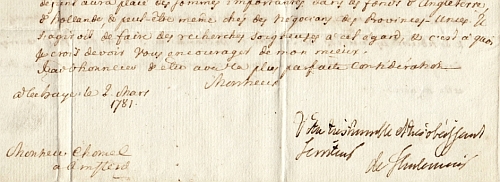 placé des sommes importantes dans les fonds d'Angleterre,
d'hollande & peut être même chez des Negocians des Provinces-Unies. Il
s'agiroit de faire des recherches soigneuses a cet égard, & c'est a quoi
je crois devoir Vous encourager de mon mieux.
J'ai l'honneur d'être avec la plus parfaite Considération
Monsieur
a la haye le 2 Mars
1781.
Votre très humble et très obéissant
Serviteur
de
Monsieur Chomel
a Amsterd